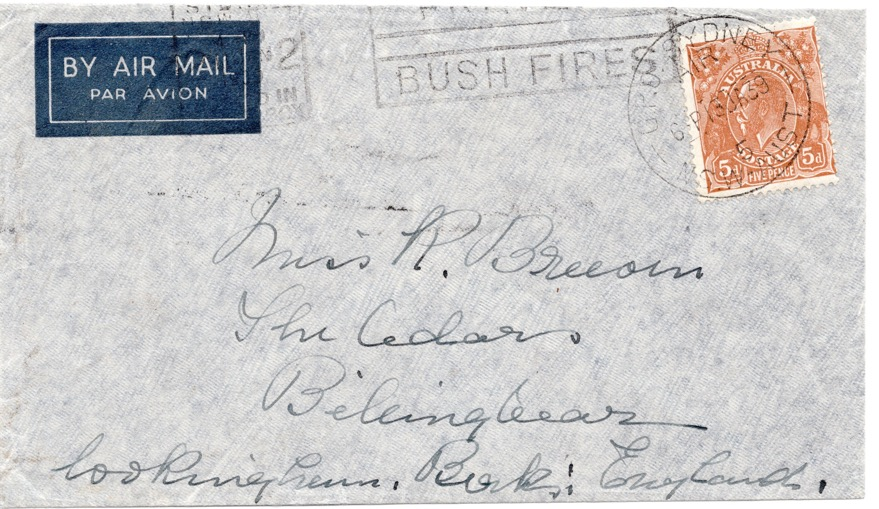 BY AIR MAIL
PAR AVION
BUSH FIRES
SYDNEY
AIR
6 P 13 JA 39
AUSTRALIA
POSTAGE
5d 5d
FIVE PENCE
Miss R. Breeoin
The Cedars
Billingbear
Wookingham. Berks: England.